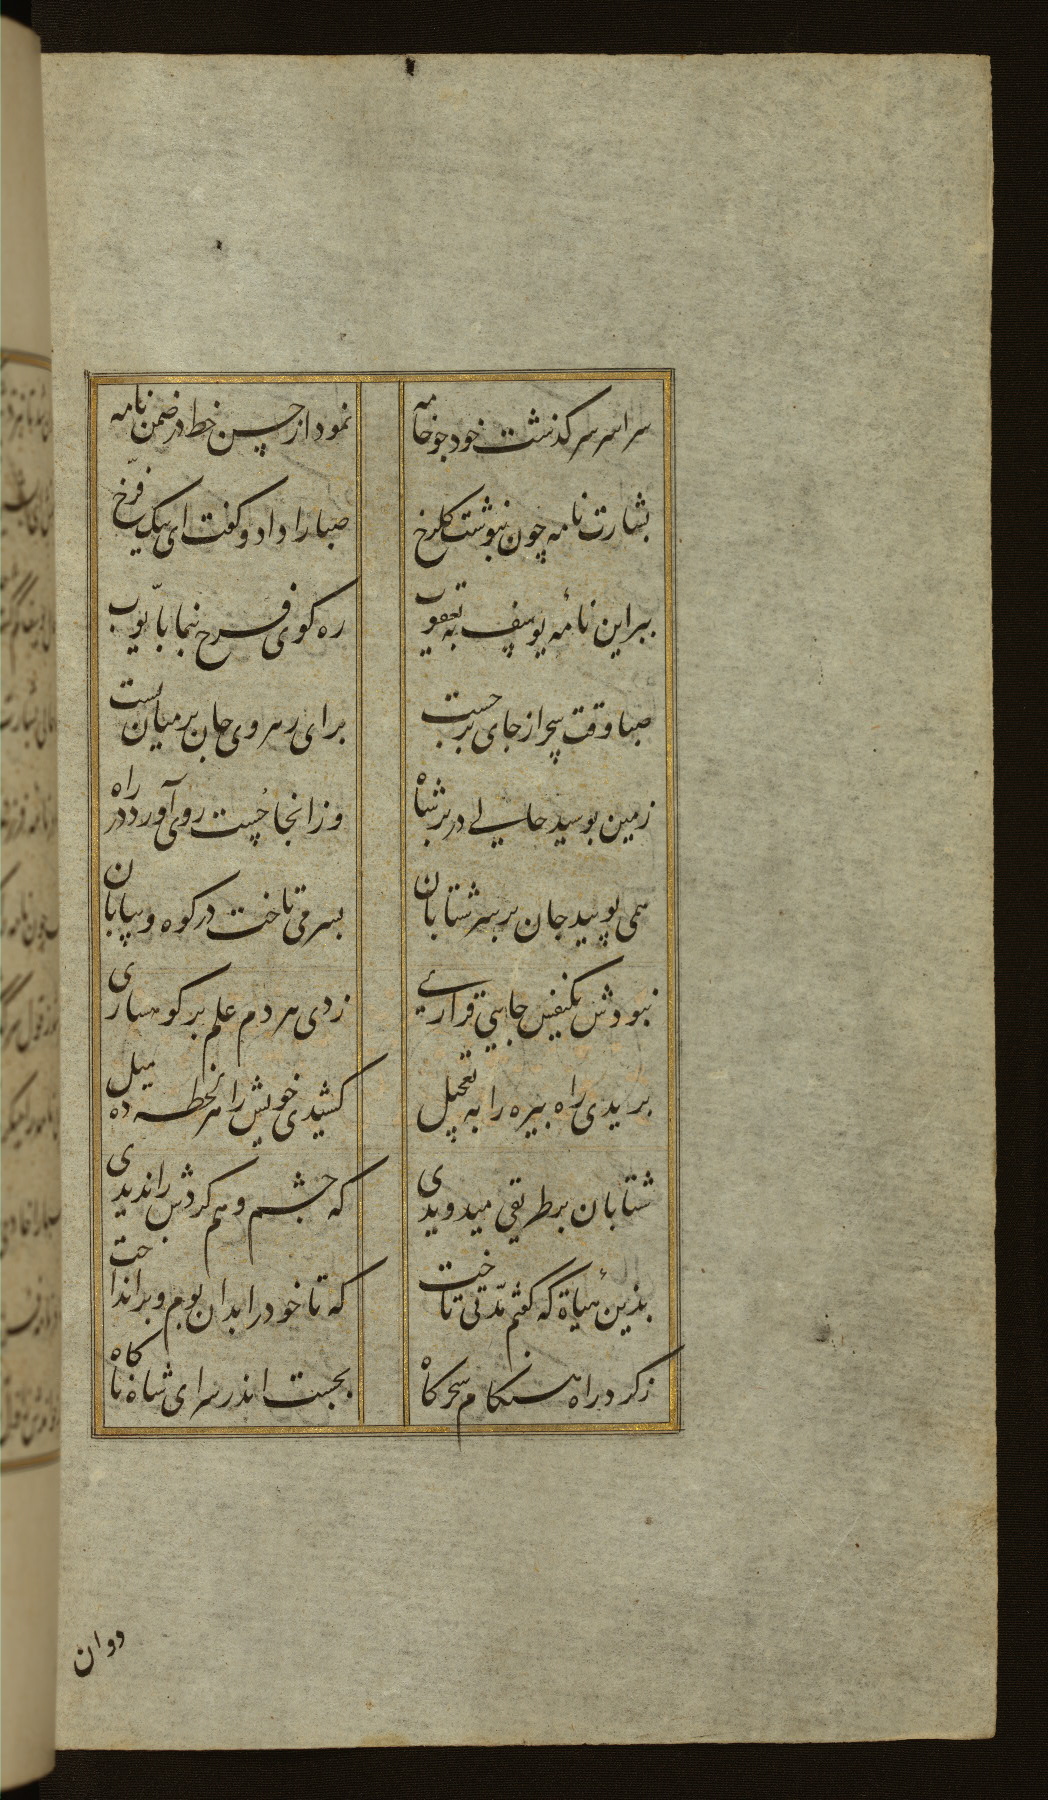 سراسر سرگذشت خود چو خامه
نمود از حسن خط در ضمن نامه
بشارت نامه چون بنوشت کلرخ
صبا را داد و کفت ای پیک فرّخ
ببر این نامهٔ یوسف به یعقوب
ره کوی فرح بنما باّیوب
صبا وقت سحر از جای برجست
برای رهروی جان بر میان بست
زمین بوسید حالی در بر شاه
وز انجا چست روی آورد در راه
همی پویید جان بر سر شتابان
بسر می تاخت در کوه و بیابان
نبودش یکنفس جایی قراری
زدی هر دم علم بر کوهساری
بریدی راه بیره را به تعجیل
کشیدی خویش را هر لحظه ده میل
شتابان بر طریقی میدویدی
که چشم وهم کردش را ندیدی
بذین هیأة که گفتم مدّتی تاخت
که تا خود را بدان بوم و بر انداخت
ز کرد راه هنکام سحرکاه
بجست اندر سرای شاه ناکاه
دوان